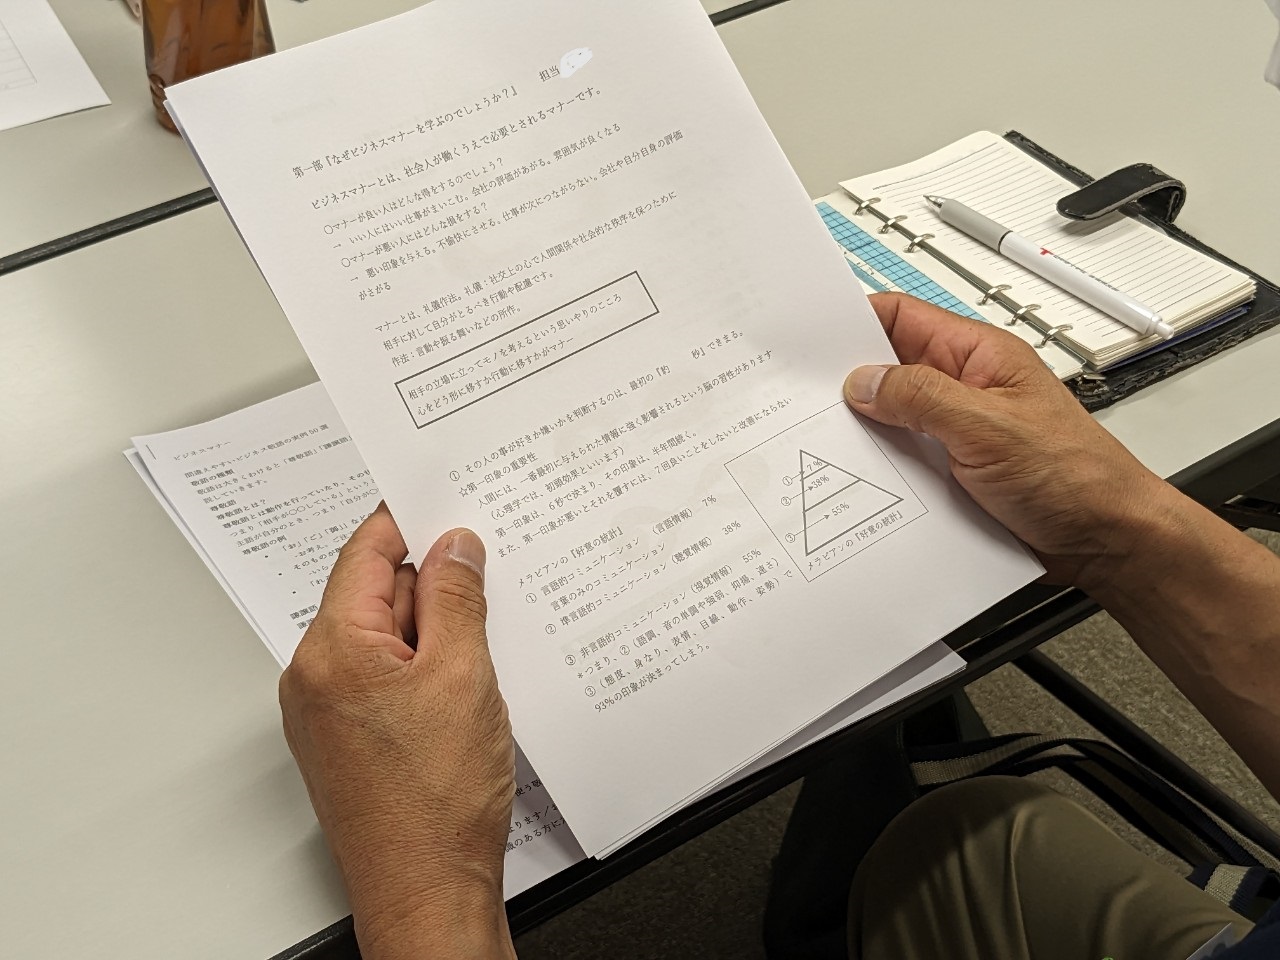 第一部『なぜビジネスマナーを学ぶのでしょうか？』　担当
ビジネスマナーとは、社会人が働くうえで必要とされるマナーです。
〇マナーが良い人はどんな得をするのでしょう？
→　いい人にはいい仕事がまいこむ。会社の評価があがる。雰囲気が良くなる
〇マナーが悪い人にはどんな損をする？
→　悪い印象を与える。不愉快にさせる。仕事が次につながらない。会社や自分自身の評価
がさがる
マナーとは、礼儀作法。礼儀：社交上の心で人間関係や社会的な秩序を保つために
相手に対して自分がとるべき行動や配慮です。
作法：言動や振る舞いなどの所作。
相手の立場に立ってモノを考えるという思いやりのこころ
心をどう形に移すか行動に移すかがマナー
① その人の事が好きか嫌いかを判断するのは、最初の『約　　秒』できまる。
☆第一印象の重要性
人間には、一番最初に与えられた情報に強く影響されるという脳の習性があります
（心理学では、初頭効果といいます）
第一印象は、6秒で決まり、その印象は、半年間続く。
また、第一印象が悪いとそれを覆すには、7回良いことをしないと改善にならない
メラビアンの『好意の統計』
① 言語的コミュニケーション　（言語情報）　7%
言葉のみのコミュニケーション
② 準言語的コミュニケーション　（聴覚情報）　38%
③ 非言語的コミュニケーション　（視覚情報）　55%
*つまり、②（語調、音の単調や強弱、抑揚、速さ）
③（態度、身なり、表情、目線、動作、姿勢）で
93%の印象が決まってしまう。
①→7%
②→38%
③→55%
メラビアンの『好意の統計』
ビジネスマナー
間違えやすいビジネス敬語の実例50選
敬語の種類
敬語は大きくわけると「尊敬語」「謙譲語」
説していきます。
尊敬語
尊敬語とは？
尊敬語とは動作を行っていたり、その
つまり「相手が〇〇している」という
主語が自分のとき、つまり「自分が〇
尊敬語の例
• 「お」「ご」「御」」など
• そのものが
謙譲語